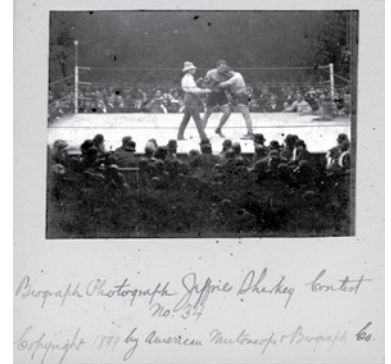 Biograph Photograph Jeffries Sharkey Contest
No. 34
Copyright 1899 by American Mutoscope & Biograph Co.